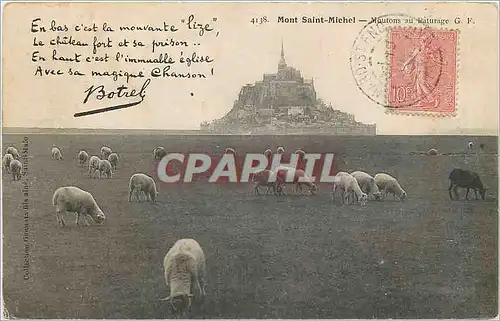 4138. Mont Saint-Michel — Moutons au Paturage G. F.
En bas c'est la mouvante "lize",
Le château fort et sa prison..
En haut c'est l'immuable église
Avec sa magique Chanson!
Botrel
10c
CPAPHIL